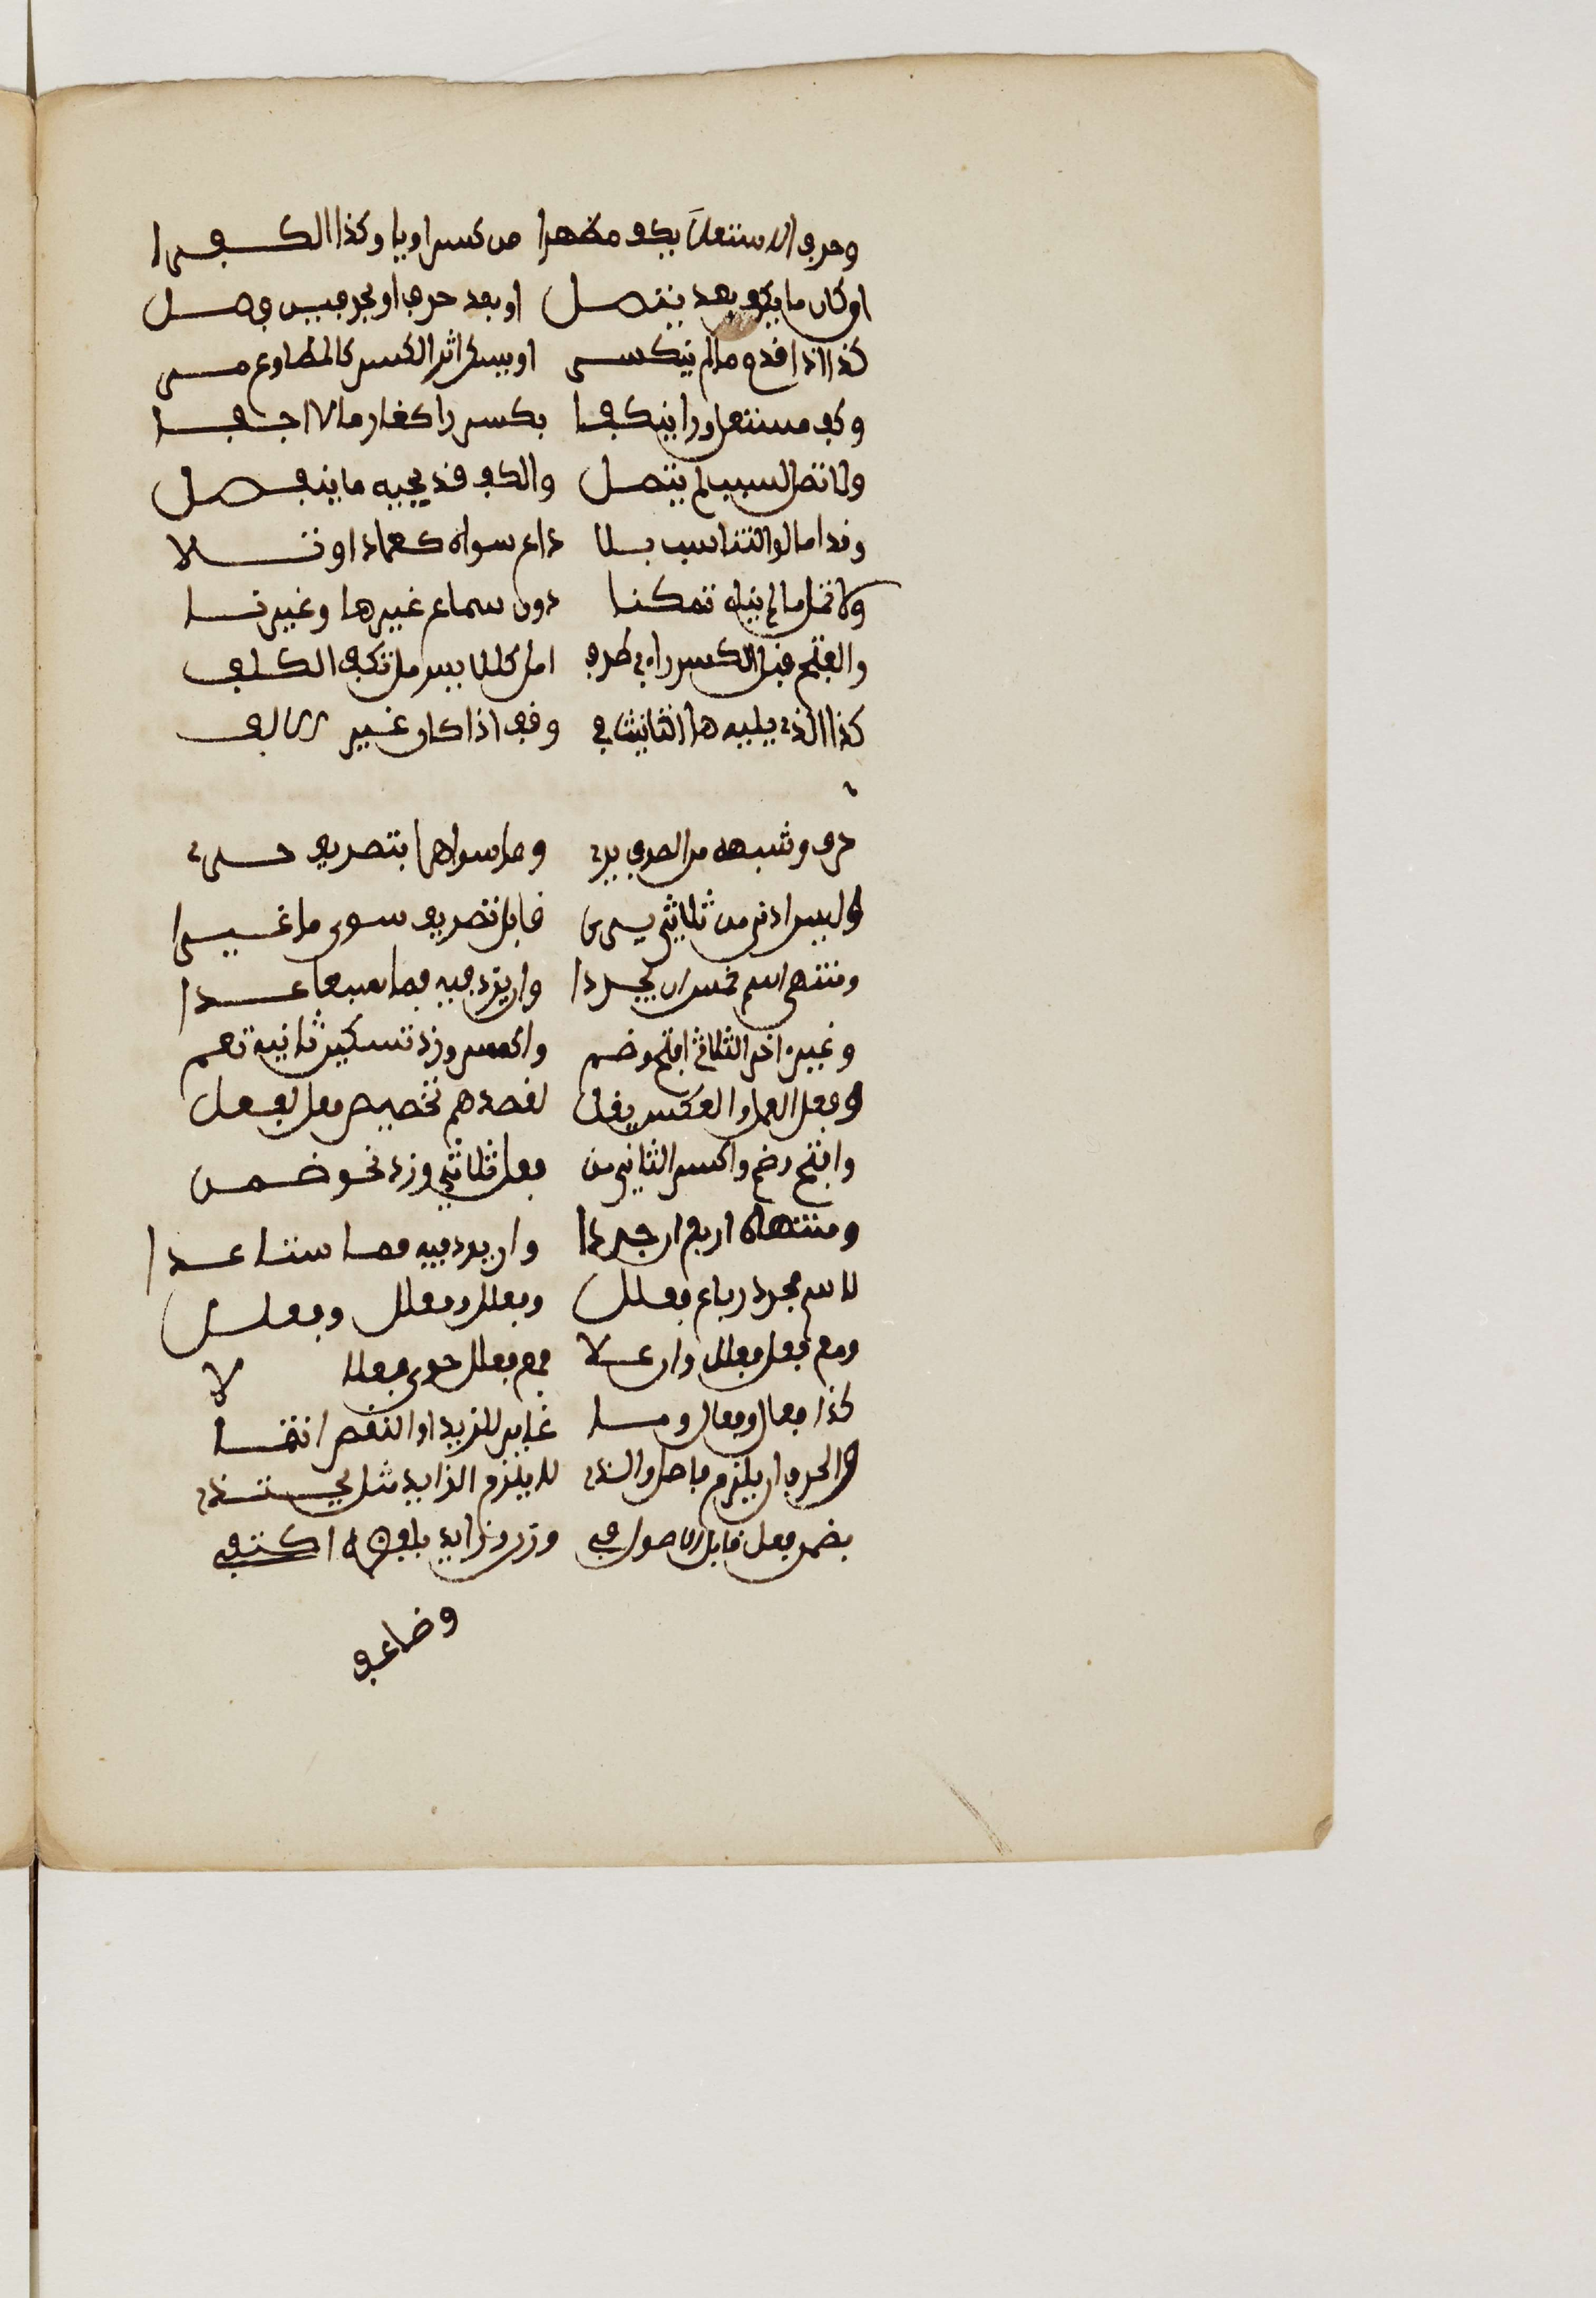 وحرف الاستعلا يكف مظهرا من كسر او يا وكذا تكف را
ان كان ما يكف بعد متصل او بعد حرف او بحرفين فصل
كذا اذا قدم ما لم ينكسر او يسكن اثر الكسر كالمطواع مر
وكف مستعل ورا ينكف بكسر را كغارما لا اجفو
ولا تمل لسبب لم يتصل والكف قد يوجبه ما ينفصل
وقد امالوا لتناسب بلا داع سواه كعمادا وتلا
ولا تمل ما لم ينل تمكنا دون سماع غيرها وغير نا
والفتح قبل الكسر راء في طرف امل كللايسر مل تكف الكلف
كذا الذي يليه ها التانيث في وقف اذا ما كان غير الف
حرف وشبهه من الصرف بري وما سواهما بتصريف حري
وليس ادنى من ثلاثي يرى قابل تصريف سوى ما غيرا
ومنتهى اسم خمس ان تجردا وان يزد فيه فما سبعا عدا
وغير اخر الثلاثي افتح وضم واكسر وزد تسكين ثانيه تعم
وفعل اهمل والعكس يقل لقصدهم تخصيص فعل بفعل
وافتح وضم واكسر الثاني من فعل ثلاثي وزد نحو ضمن
ومنتهاه اربع ان جردا وان يزد فيه فما ستا عدا
لاسم مجرد رباع فعلل وفعلل وفعلل وفعلل
ومع فعل فعلل وان علا فمع فعلل حوى فعللا
كذا فعلل وفعلل وما غاير للزيد او النقص انتمى
والحرف ان يلزم فاصل والذي لا يلزم الزايد مثل تا احتذي
بضمن فعل قابل الاصول في وزن وزايد بلفظه اكتفي
وضاعف